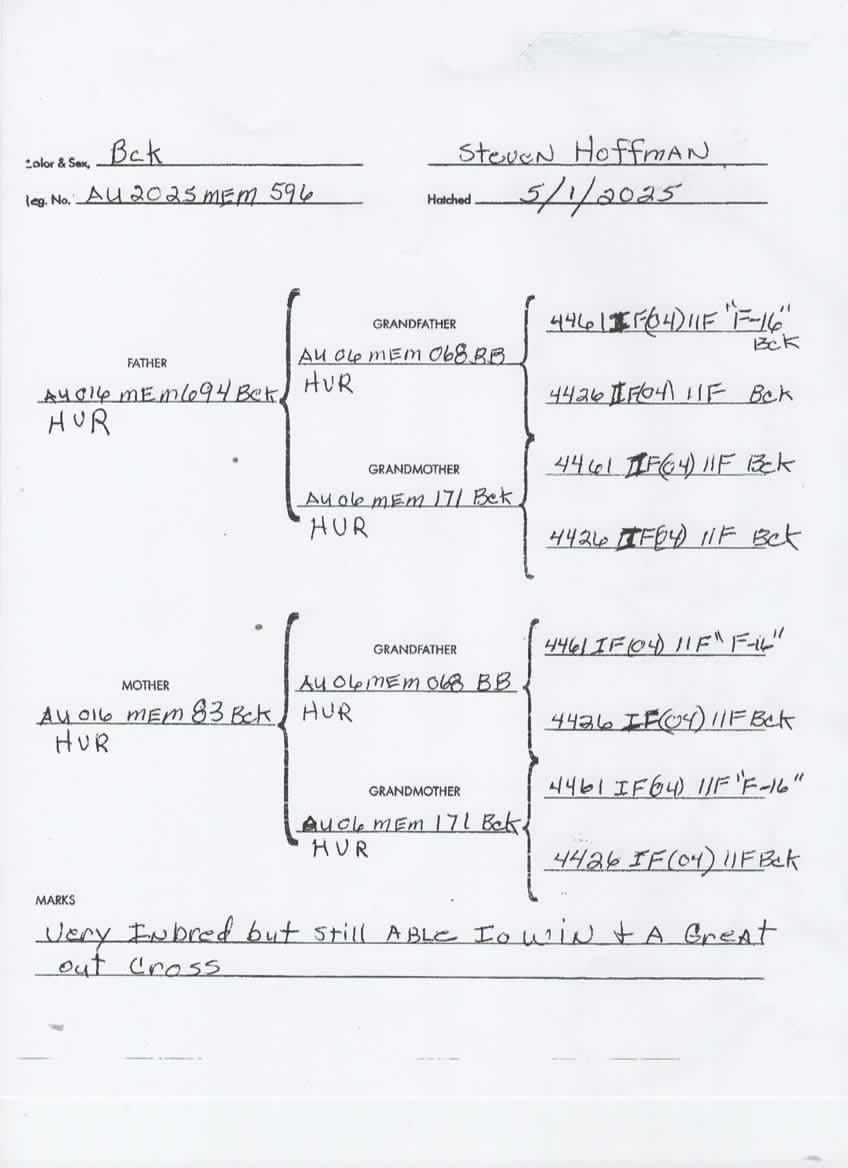 Color & Sex, Bck
Steven Hoffman
Reg. No. AU 2025 MEM 596
Hatched 5/1/2025
FATHER
AU 016 MEM 694 Bck
HVR
GRANDFATHER
AU 06 MEM 068 BB
HVR
GRANDMOTHER
AU 06 MEM 171 Bck
HVR
4461 IF(04) 11F "F-16"
Bck
4426 IF(04) 11F Bck
4461 IF(04) 11F Bck
4426 IF(04) 11F Bck
MOTHER
AU 016 MEM 83 Bck
HVR
GRANDFATHER
AU 06 MEM 068 BB
HVR
GRANDMOTHER
AU 06 MEM 171 Bck
HVR
4461 IF(04) 11F "F-16"
4426 IF(04) 11F Bck
4461 IF(04) 11F "F-16"
4426 IF(04) 11F Bck
MARKS
Very Inbred but still ABLE To WIN + A Great
out Cross